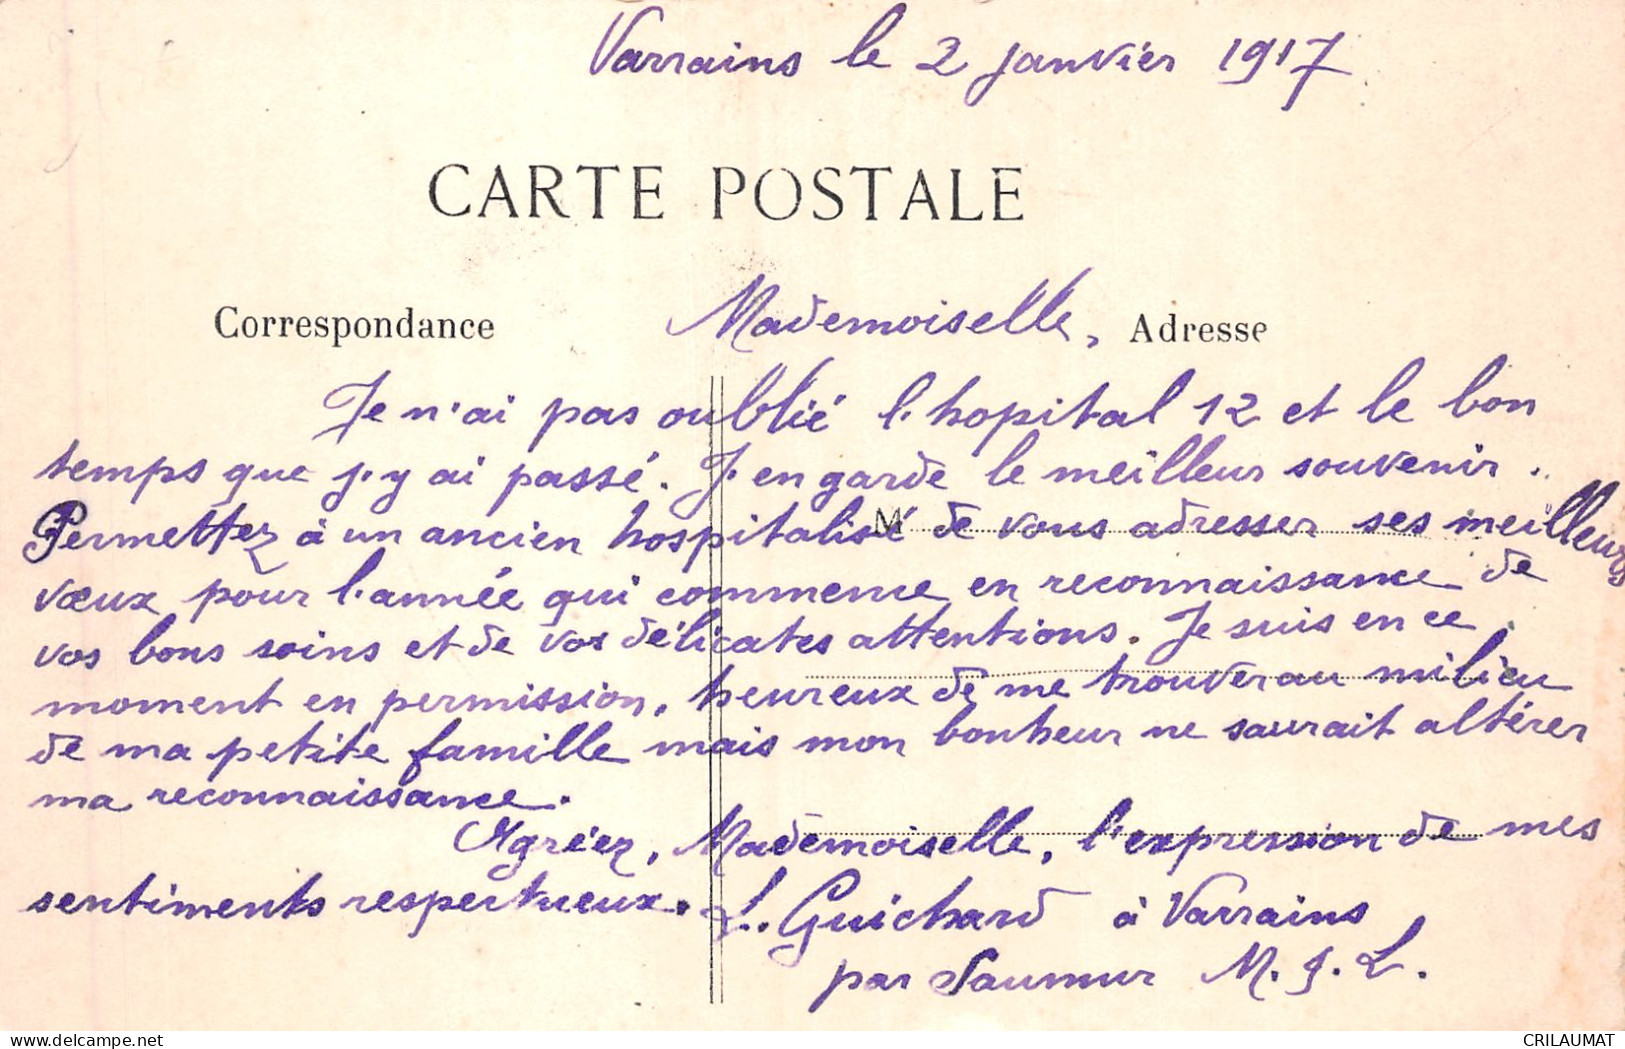 Varrains le 2 janvier 1917
CARTE POSTALE
Correspondance
Mademoiselle,
Adresse
Je n'ai pas oublié l'hopital 12 et le bon
temps que j'y ai passé. J'en garde le meilleur souvenir.
Permettez à un ancien hospitalisé de vous adresser ses meilleurs
M
vœux pour l'année qui commence en reconnaissance de
vos bons soins et de vos délicates attentions. Je suis en ce
moment en permission, heureux de me trouver au milieu
de ma petite famille mais mon bonheur ne saurait altérer
ma reconnaissance.
Agréez, Mademoiselle, l'expression de mes
sentiments respectueux. L. Guichard à Varrains
par Saumur M. & L.
delcampe.net
CRILAUMAT